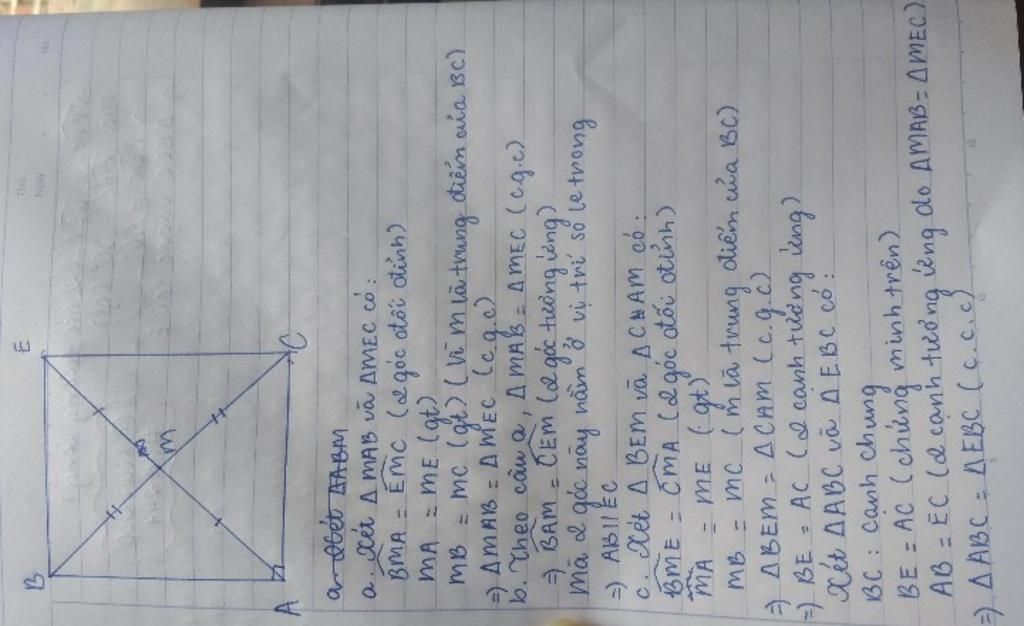 Thứ
Ngày
No.
B
E
M
A
C
a. Xét ΔABM
a. Xét Δ MAB và ΔMEC có:
BMA = EMC (2 góc đối đỉnh)
MA = ME (gt)
MB = MC (gt) (Vì M là trung điểm của BC)
=) ΔMAB = ΔMEC (c.g.c)
b. Theo câu a, ΔMAB = ΔMEC (c.g.c)
=) BAM = CEM (2 góc tương ứng)
Mà 2 góc này nằm ở vị trí so le trong
=) AB//EC
c. Xét Δ BEM và Δ CAM có:
BME = CMA (2 góc đối đỉnh)
MA = ME (gt)
MB = MC (M là trung điểm của BC)
=) ΔBEM = ΔCAM (c.g.c)
=) BE = AC (2 cạnh tương ứng)
Xét ΔABC và ΔEBC có:
BC: cạnh chung
BE = AC (chứng minh trên)
AB = EC (2 cạnh tương ứng do ΔMAB = ΔMEC)
=) ΔABC = ΔEBC (c.c.c)